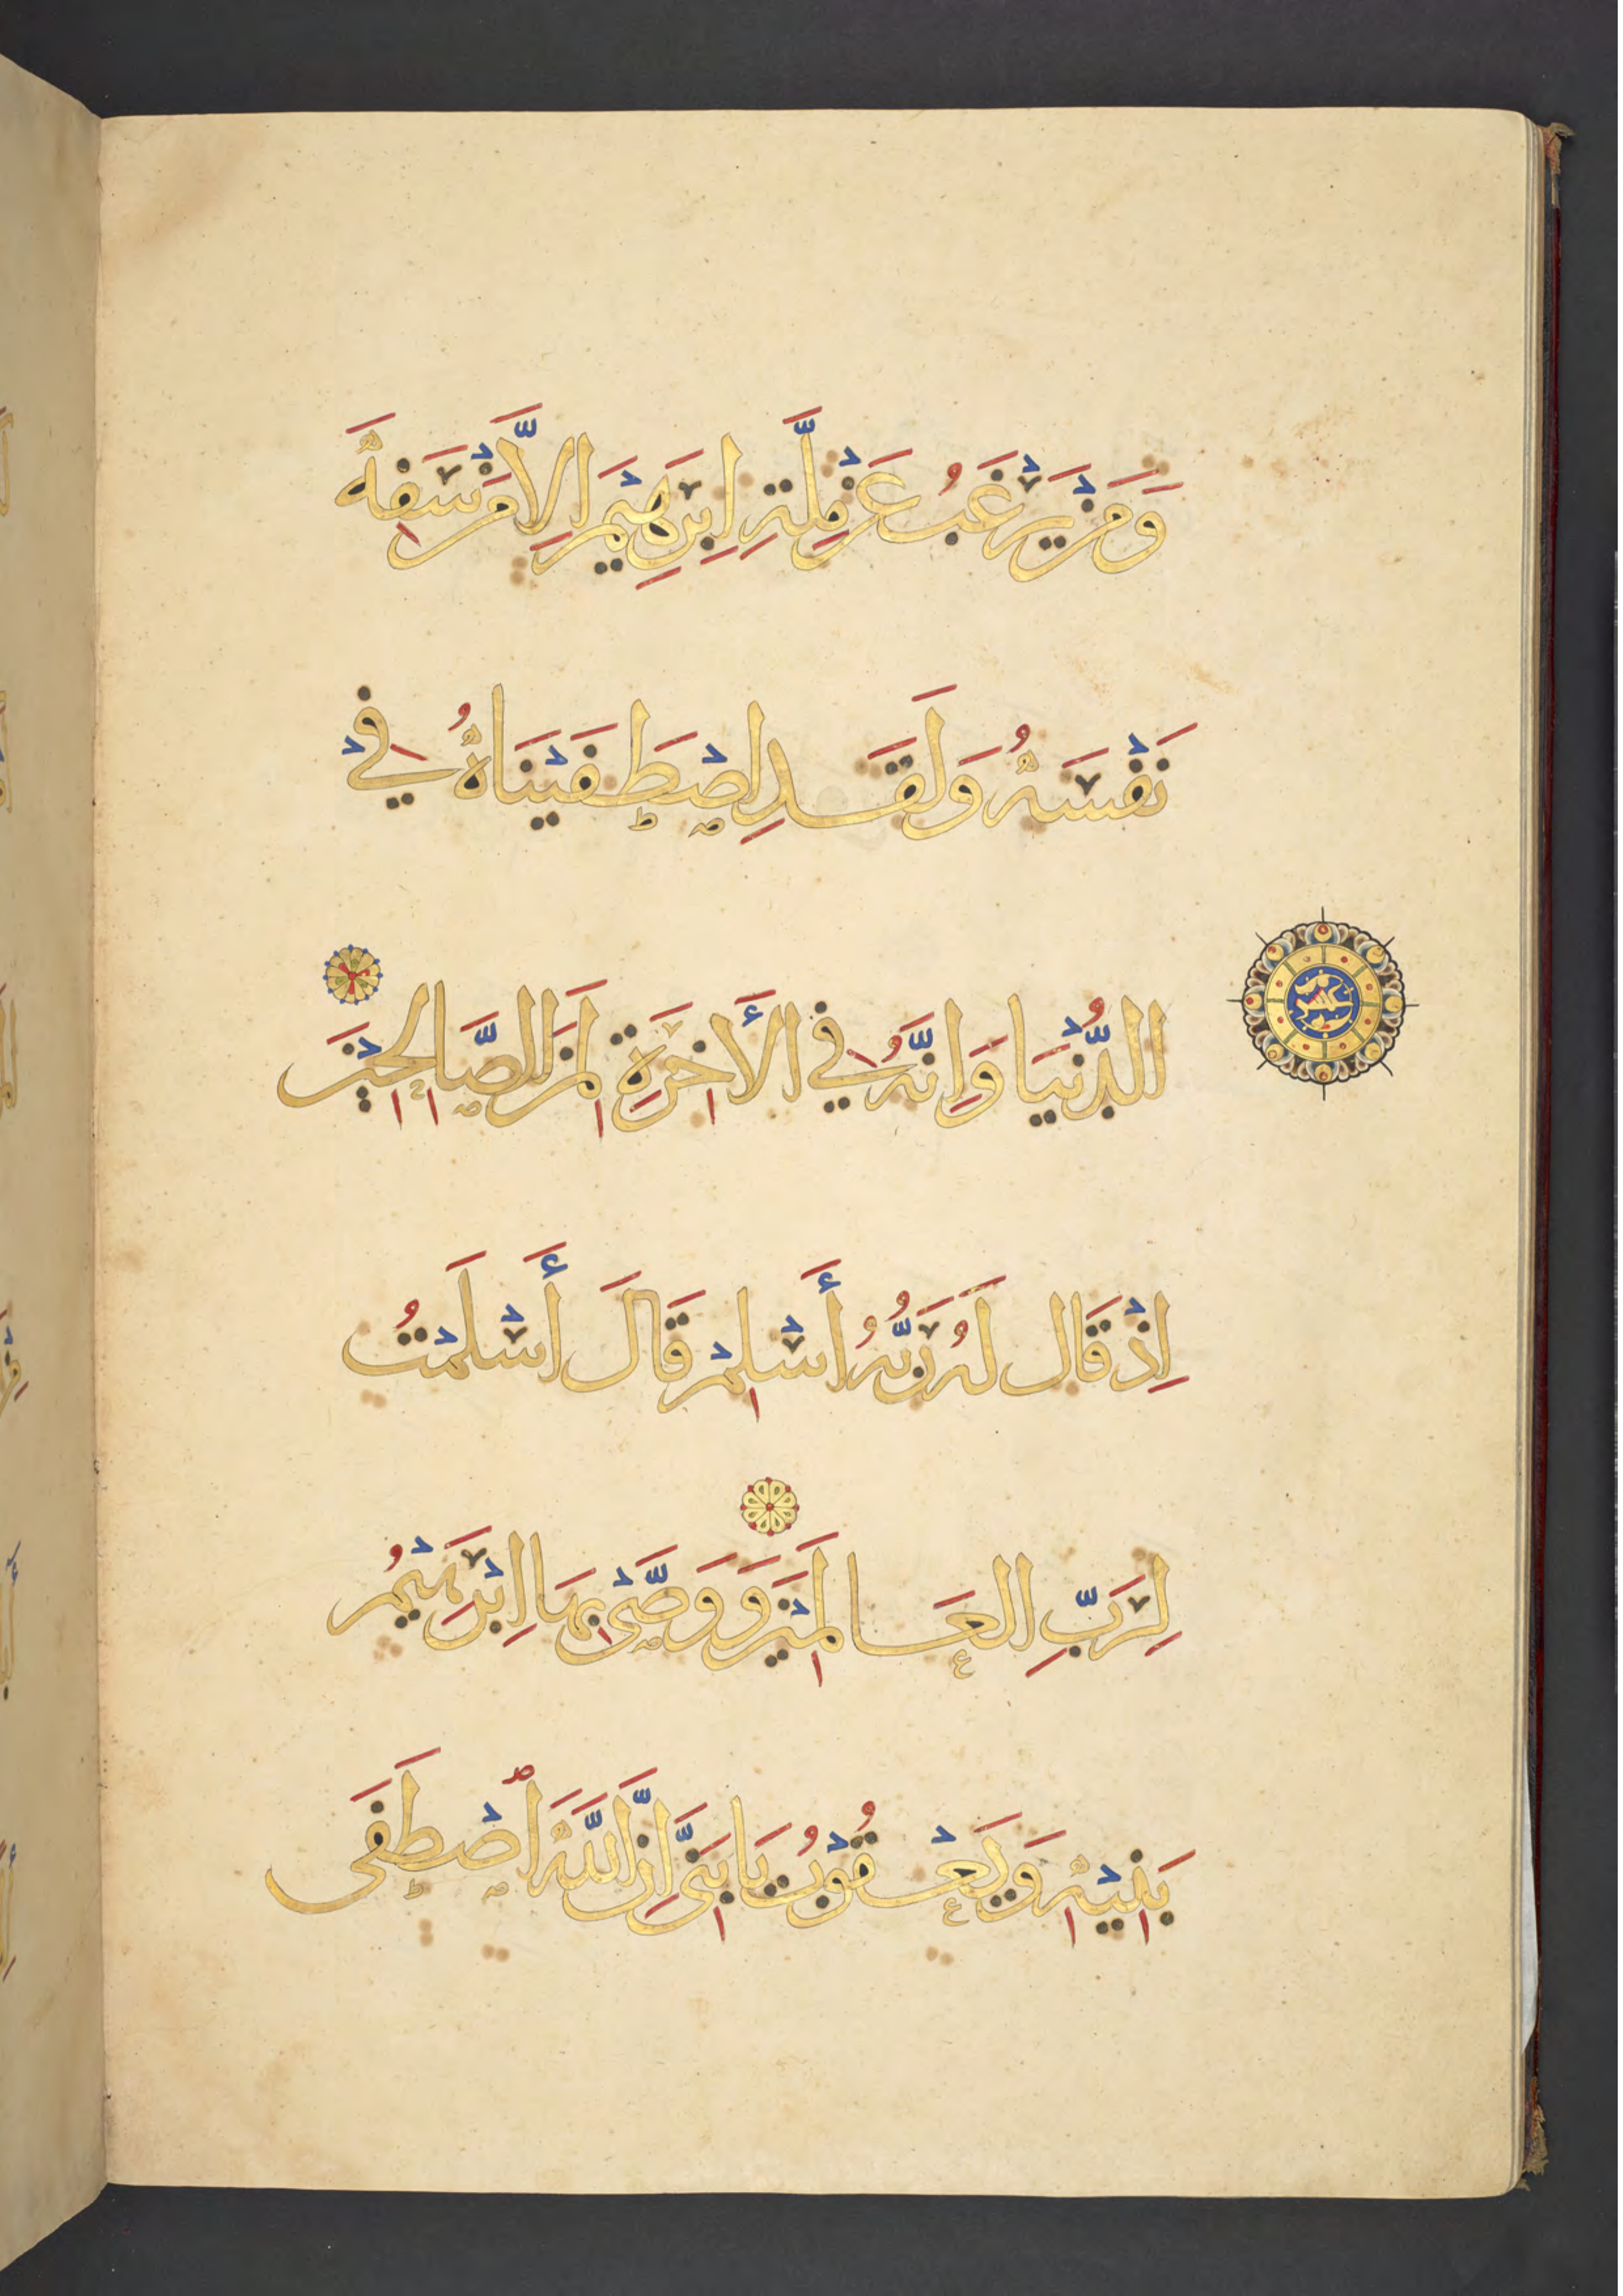 وَمَنْ يَرْغَبُ عَنْ مِلَّةِ اِبْرٰهِيْمَ اِلَّا مَنْ سَفِهَ
نَفْسَهُ وَلَقَدِ اصْطَفَيْنَاهُ فِيْ
الدُّنْيَا وَاِنَّهُ فِي الْأَخِرَةِ لَمِنَ الصَّالِحِيْنَ
اِذْ قَالَ لَهُ رَبُّهُ أَسْلِمْ قَالَ أَسْلَمْتُ
لِرَبِّ الْعَالَمِيْنَ وَوَصَّىْ بِهَا اِبْرَهِيْمُ
بَنِيْهِ وَيَعْقُوْبُ يَا بَنِيَّ اِنَّ اللَّهَ اصْطَفَى